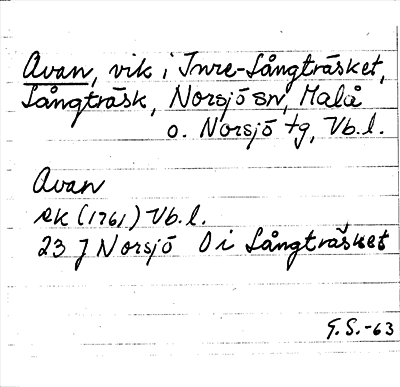 Avan, vik i Inre-Långträsket,
Långträsk, Norsjö sn, Malå
o. Norsjö tg, Vb.l.
Avan
ek (1761) Vb.l.
23 J Norsjö O i Långträsket
G.S.-63